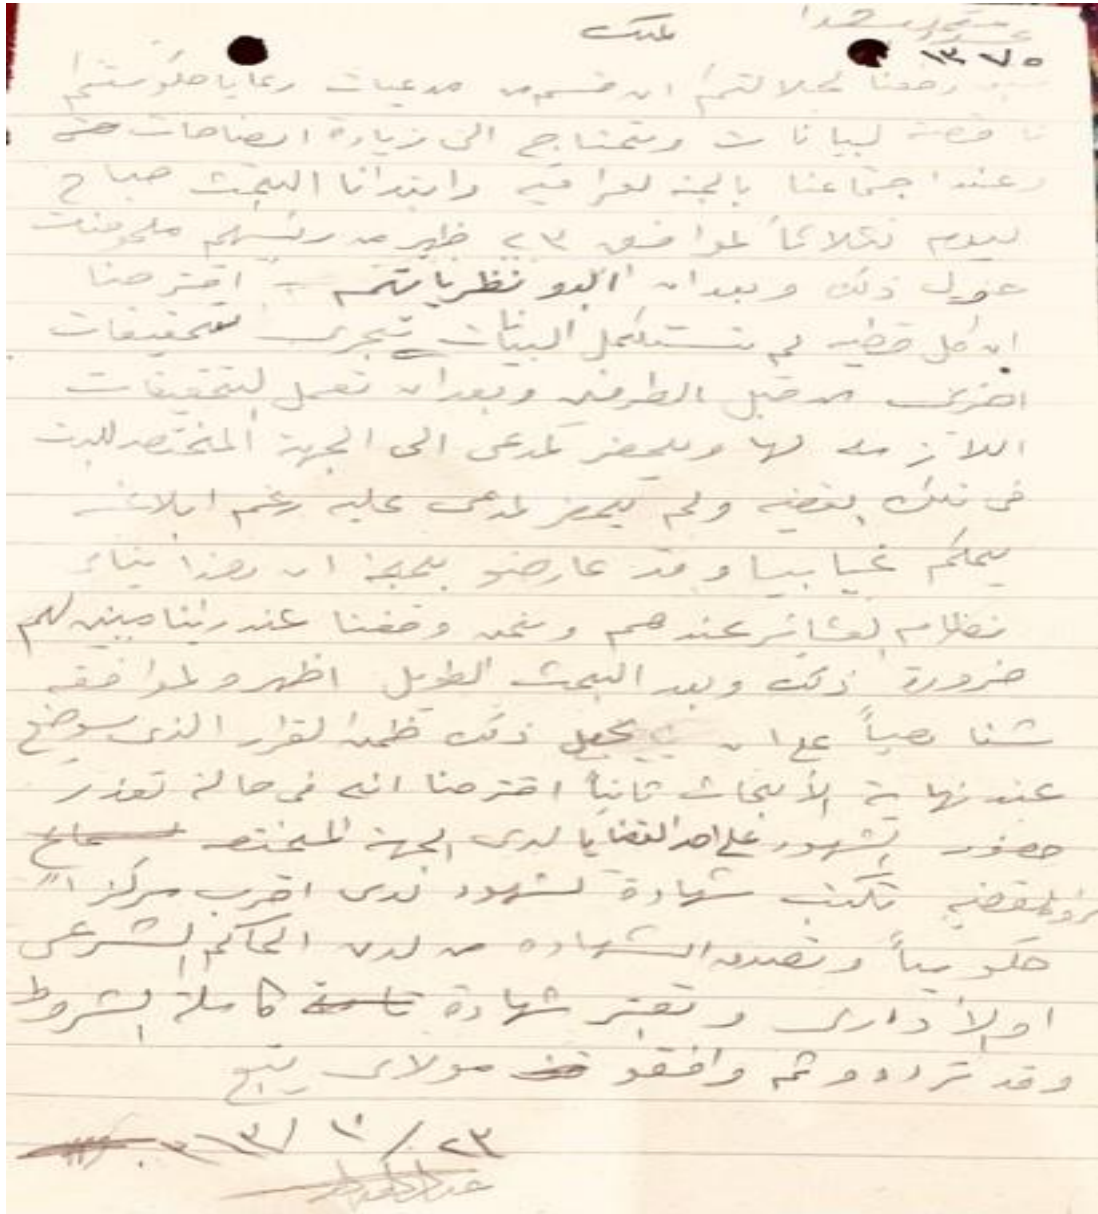 ملك
١٣٧٥
رفعنا لجلالتكم ان قسم من مدعيات رعايا حكومتكم
ناقصة لبيانات وتحتاج الى زيادة ايضاحات حتى
وعند اجتماعنا بالجنه لعراقيه وابتدانا البحث صباح
ليوم لثلاثا لموافق ٢٣ ظهر من رئيسهم ملحوضات
حول ذلك وبعد ان ابدو نظرياتهم اقترحنا
ان كل قضيه لم تستكمل البينات تجرى تحقيقات
اخرى من قبل الطرفين وبعد ان تعمل لتحقيقات
اللازمه لها ويحضر لمدعى الى الجهة المختصه للبت
فى تلك لقضيه ولم يحضر لمدعى عليه رغم ابلاغه
يحكم غيابيا وقد عارضو بحجة ان هذا ينافى
نظام لعشائر عندهم ونحن وقفنا عند راينا مبينين لهم
ضرورة ذلك وبعد البحث الطويل اظهرو لموافقه
شفاهياً على ان يجعل ذلك ظمن لقرار الذى سيوضع
عند نهاية الأبحاث ثانياً اقترحنا انه فى حالة تعذر
حضور لشهود على احد القضايا لدى الجهة المختصه
لقضيه تكتب شهادة لشهود لدى اقرب مركز اً
حكومياً وتصدق الشهاده من لدن الحاكم لشرعى
او الأدارى وتعتبر شهادة كاملة لشروط
وقد ترددو ثم وافقو مولاى يتبع
٢٣/١٠/١٣